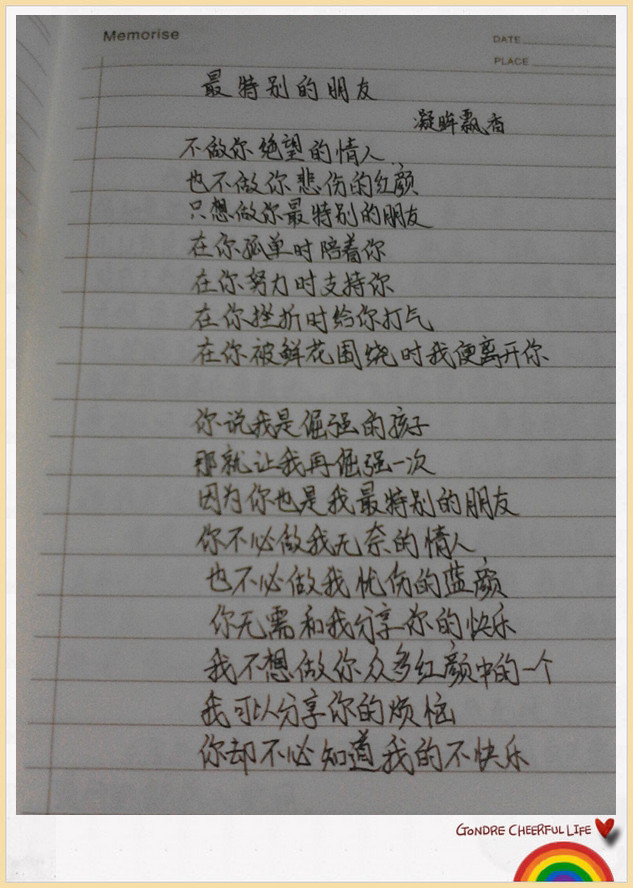 Memorise
DATE
PLACE
最特别的朋友
凝眸飘香
不做你绝望的情人,
也不做你悲伤的红颜
只想做你最特别的朋友
在你孤单时陪着你
在你努力时支持你
在你挫折时给你打气
在你被鲜花围绕时我便离开你
你说我是倔强的孩子
那就让我再倔强一次
因为你也是我最特别的朋友
你不必做我无奈的情人,
也不必做我忧伤的蓝颜
你无需和我分享你的快乐
我不想做你众多红颜中的一个
我可以分享你的烦恼
你却不必知道我的不快乐
GONDRE CHEERFUL LIFE